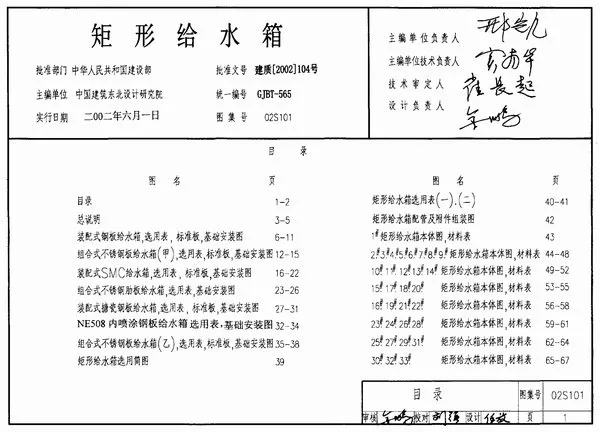 矩形给水箱
批准部门 中华人民共和国建设部 批准文号 建质[2002]104号
主编单位 中国建筑东北设计研究院 统一编号 GJBT-565
实行日期 二00二年六月一日 图集号 02S101
主编单位负责人
主编单位技术负责人
技术审定人
设计负责人
目录
图名 页
目录 1-2
总说明 3-5
装配式钢板给水箱,选用表,标准板,基础安装图 6-11
组合式不锈钢板给水箱(甲),选用表,标准板,基础安装图 12-15
装配式SMC给水箱,选用表,标准板,基础安装图 16-22
组合式不锈钢肋板给水箱,选用表,标准板,基础安装图 23-26
装配式搪瓷钢板给水箱,选用表,标准板,基础安装图 27-31
NE508内喷涂钢板给水箱选用表,基础安装图 32-34
组合式不锈钢板给水箱(乙),选用表,标准板,基础安装图 35-38
矩形给水箱选用简图 39
图名 页
矩形给水箱选用表(一).(二) 40-41
矩形给水箱配管及附件组装图 42
1#矩形给水箱本体图,材料表 43
2#3#4#5#6#7#8#9#矩形给水箱本体图,材料表 44-48
10#11#12#13#14#矩形给水箱本体图,材料表 49-52
15#17#18#20#矩形给水箱本体图,材料表 53-55
16#19#21#22#矩形给水箱本体图,材料表 56-58
23#24#26#28#矩形给水箱本体图,材料表 59-61
25#27#29#31#矩形给水箱本体图,材料表 62-64
30#32#33#矩形给水箱本体图,材料表 65-67
目录 图集号 02S101
审核 校对 设计 页 1